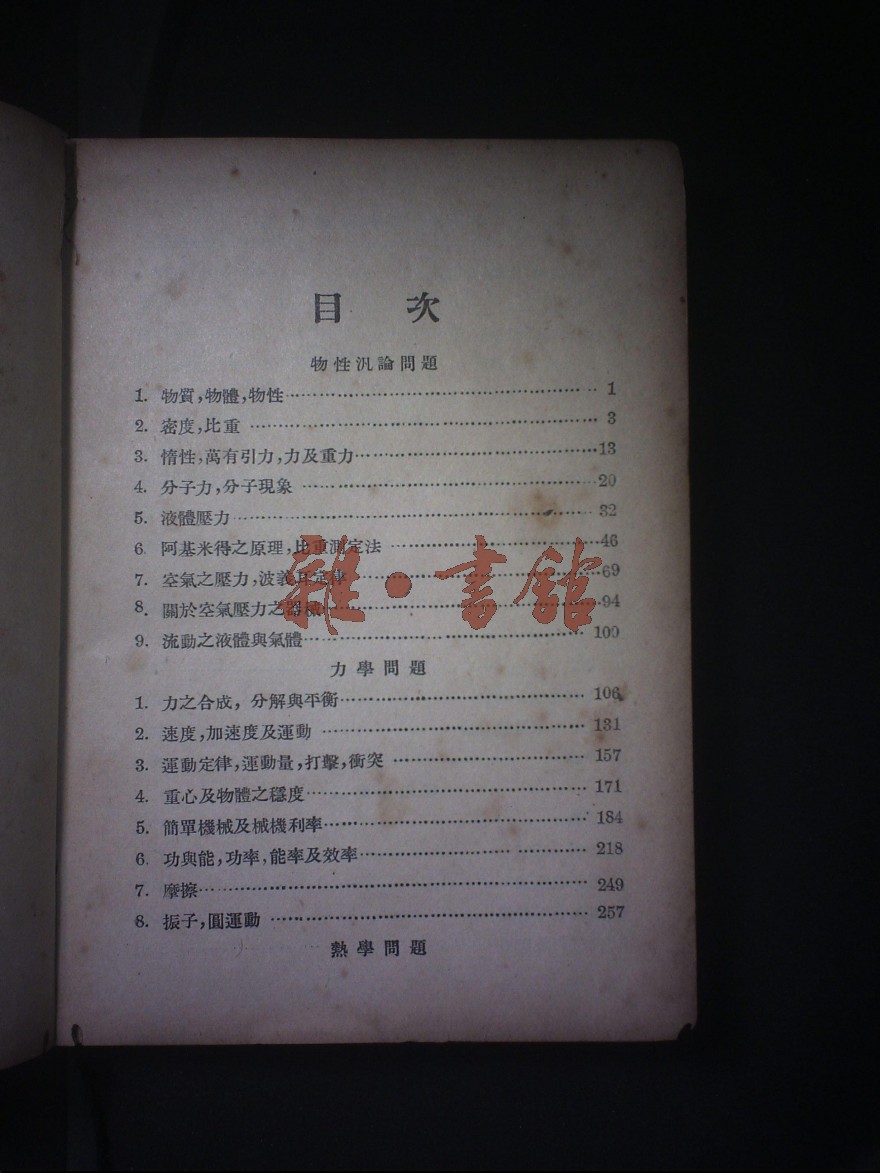 目 次
物性汎論問題
1. 物質,物體,物性 1
2. 密度,比重 3
3. 惰性,萬有引力,力及重力 13
4. 分子力,分子現象 20
5. 液體壓力 32
6. 阿基米得之原理,比重測定法 46
7. 空氣之壓力,波義耳定律 69
8. 關於空氣壓力之器械 94
9. 流動之液體與氣體 100
力學問題
1. 力之合成,分解與平衡 106
2. 速度,加速度及運動 131
3. 運動定律,運動量,打擊,衝突 157
4. 重心及物體之穩度 171
5. 簡單機械及械機利率 184
6. 功與能,功率,能率及效率 218
7. 摩擦 249
8. 振子,圓運動 257
熱學問題
雜·書館